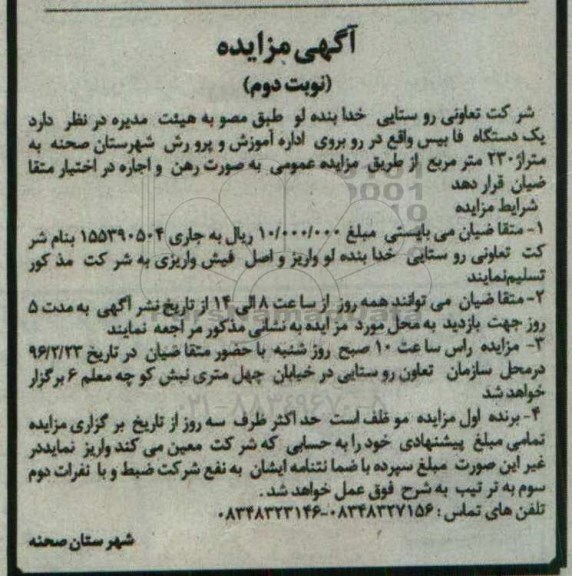 آگهی مزایده
(نوبت دوم)
شر کت تعاونی رو ستایی خدا بنده لو طبق مصو به هیئت مدیره در نظر دارد
یک دستگاه فا بیس واقع در رو بروی اداره آموزش و پرو رش شهرستان صحنه به
متراژ ۲۳۰ متر مربع از طریق مزایده عمومی به صورت رهن و اجاره در اختیار متقا
ضیان قرار دهد
شرایط مزایده
۱- متقا ضیان می بایستی مبلغ ۱۰/۰۰۰/۰۰۰ ریال به جاری ۱۵۵۳۹۰۵۰۴ بنام شر
کت تعاونی رو ستایی خدا بنده لو واریز و اصل فیش واریزی به شر کت مذ کور
تسلیم نمایند
۲- متقا ضیان می توانند همه روز از سا عت ۸ الی ۱۴ از تاریخ نشر آگهی به مدت ۵
روز جهت بازدید به محل مورد مز ایده به نشانی مذکور مر اجعه نمایند
۳- مزایده راس سا عت ۱۰ صبح روز شنبه با حضور متقا ضیان در تاریخ ۹۶/۲/۲۳
درمحل سازمان تعاون رو ستایی در خیابان چهل متری نبش کو چه معلم ۶ برگزار
خواهد شد
۴- برنده اول مزایده مو ظف است حد اکثر ظرف سه روز از تاریخ بر گزاری مزایده
تمامی مبلغ پیشنهادی خود را به حسابی که شر کت معین می کند واریز نمایددر
غیر این صورت مبلغ سپرده با ضما نتنامه ایشان به نفع شرکت ضبط و با نفرات دوم
سوم به تر تیب به شرح فوق عمل خواهد شد.
تلفن های تماس : ۰۸۳۴۸۳۲۷۱۵۶-۰۸۳۴۸۳۲۳۱۴۶
شهر ستان صحنه